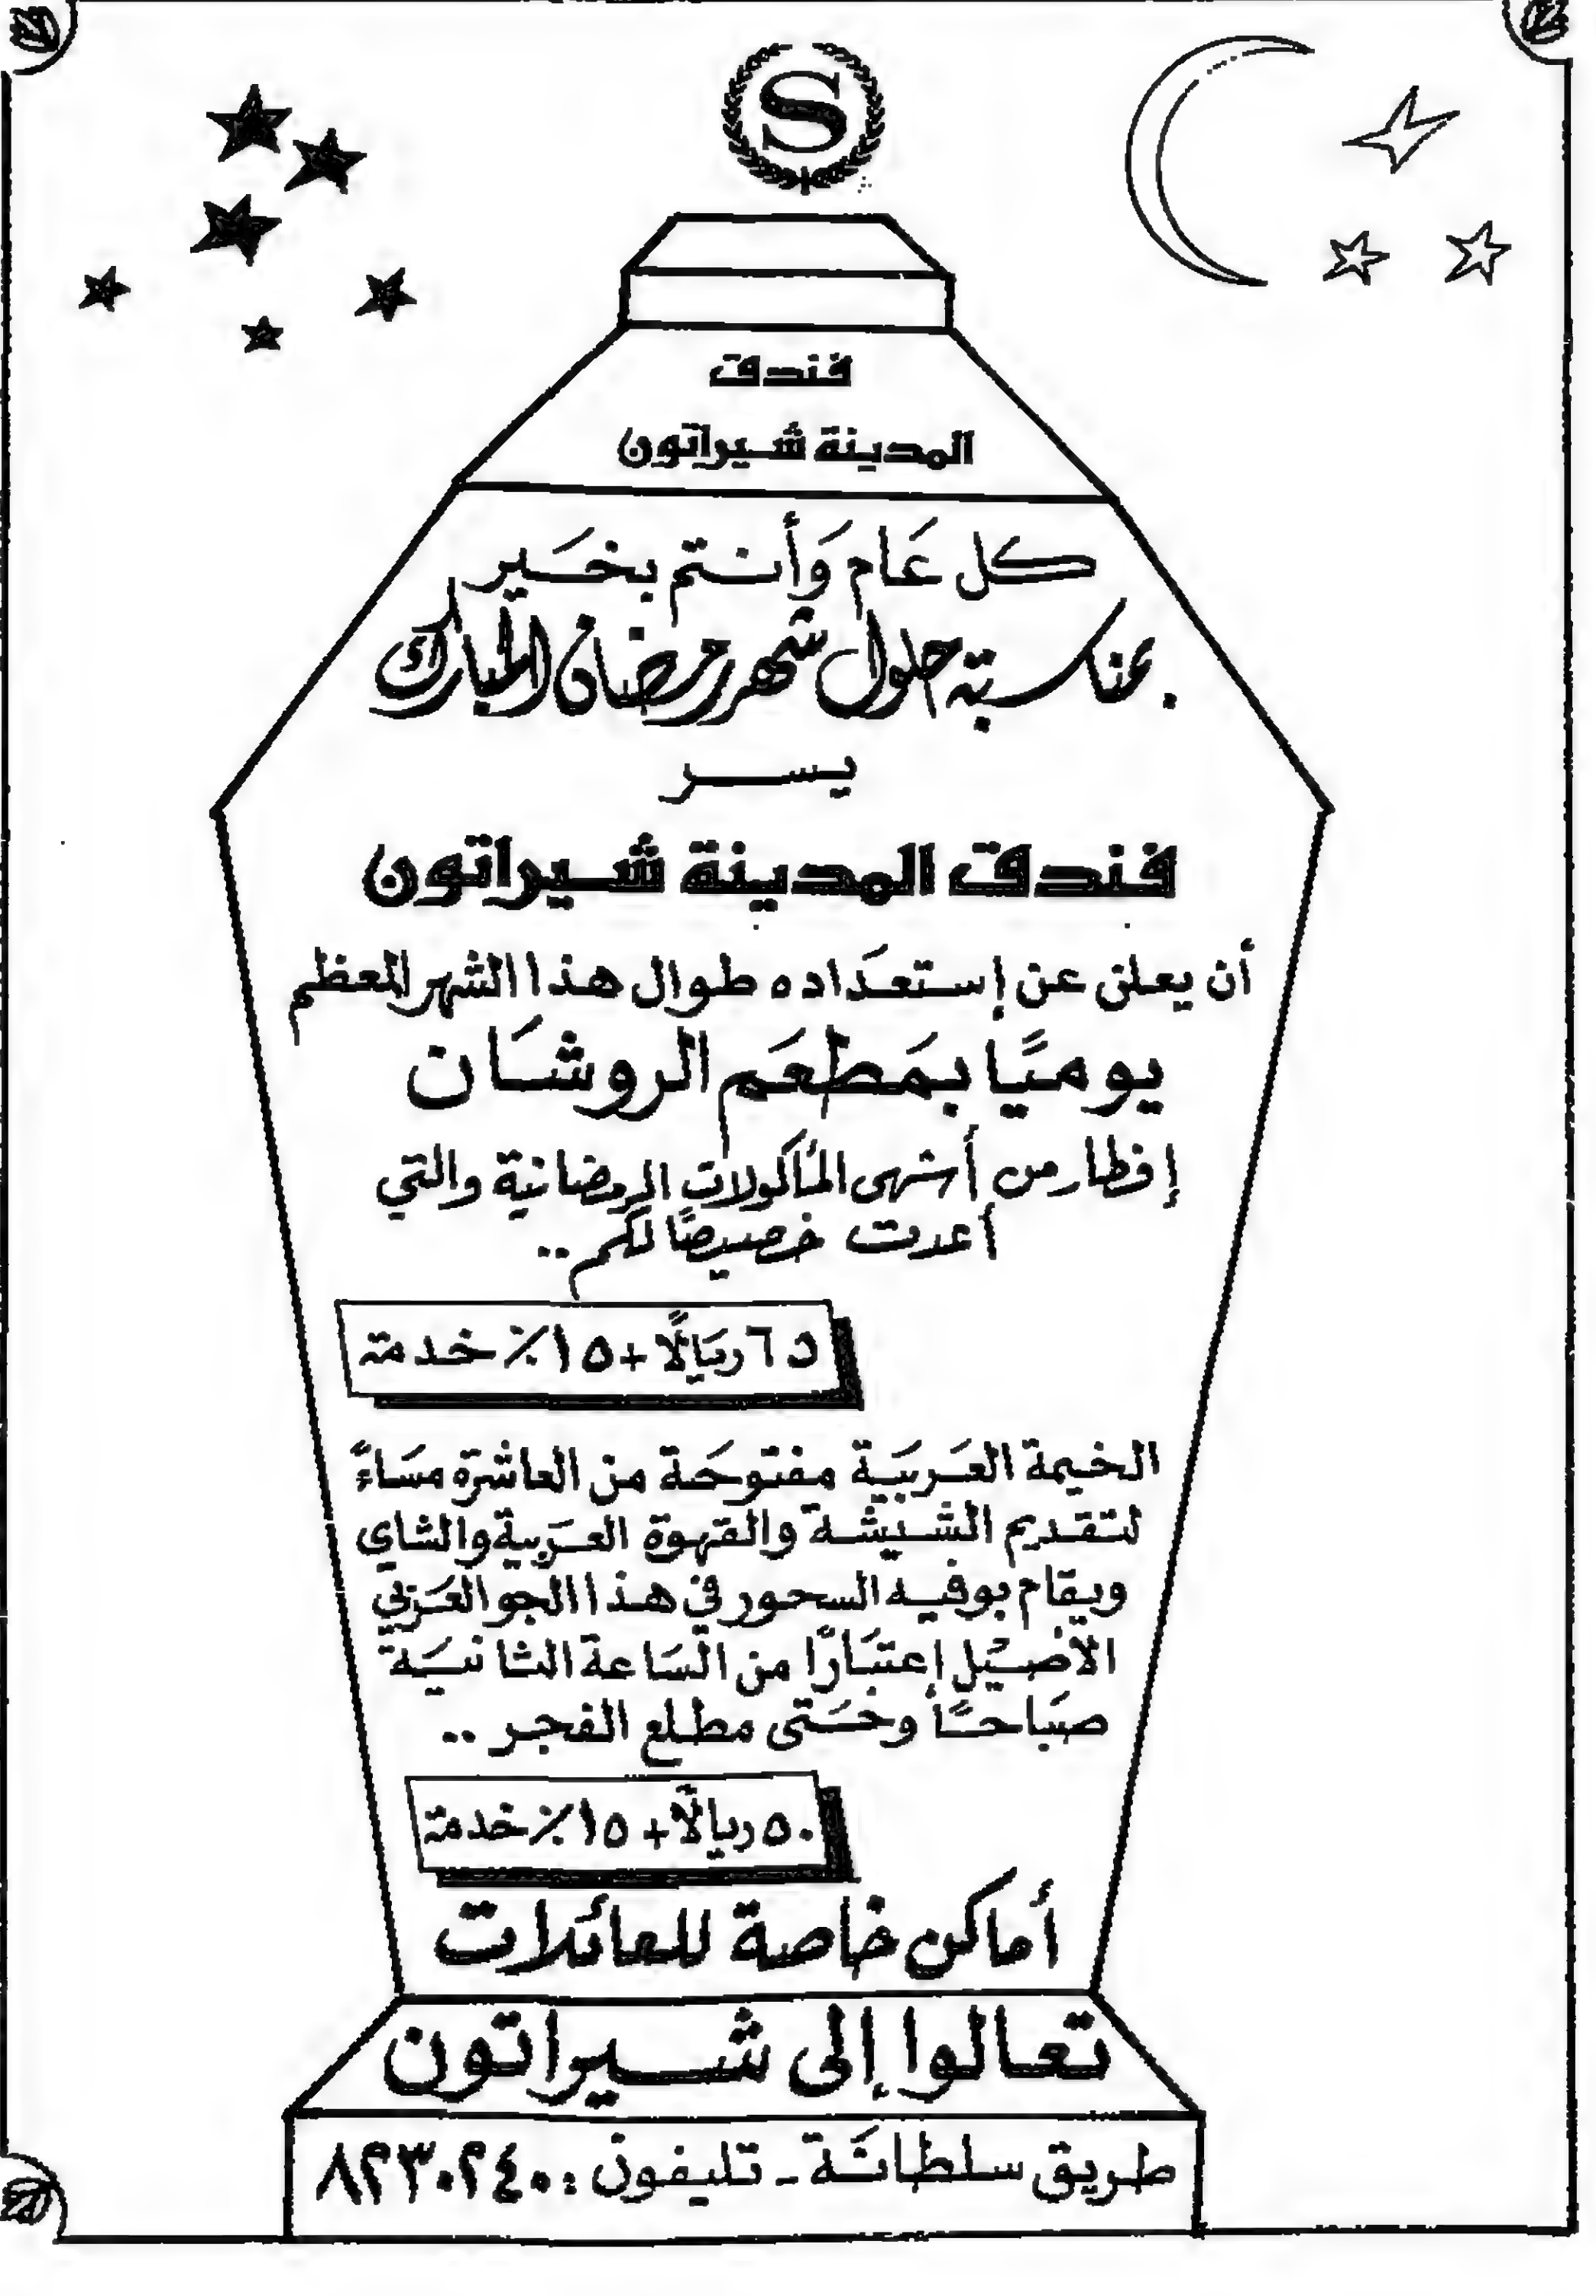 S
فندق
المدينة شيراتون
كل عَام وَأنتم بخَير
بمناسبة حلول شهر رمضان المبارك
يسر
فندق المدينة شيراتون
أن يعلن عن إستعدَاده طوال هذا الشهر المعظم
يوميًا بمَطعَم الروشَان
إفطار من أشهى المأكولات الرمضانية والتي
أعدت خصيصًا لكم..
٦٥ ريَالًا + ١٥٪ خدمة
الخيمة العَربَية مفتوحَة من العاشرة مسَاءً
لتقديم الشيشة والقهوة العَربية والشاي
ويقام بوفيه السحور في هذا الجو العَربي
الأصيل إعتبَارًا من السَاعة الثانيَة
صبَاحًا وحَتى مطلع الفجر ..
٥٠ ريالًا + ١٥٪ خدمة
أماكن خاصة للعائلات
تعالوا إلى شيراتون
طريق سلطانَة - تليفون: ٨٢٣٠٢٤٠